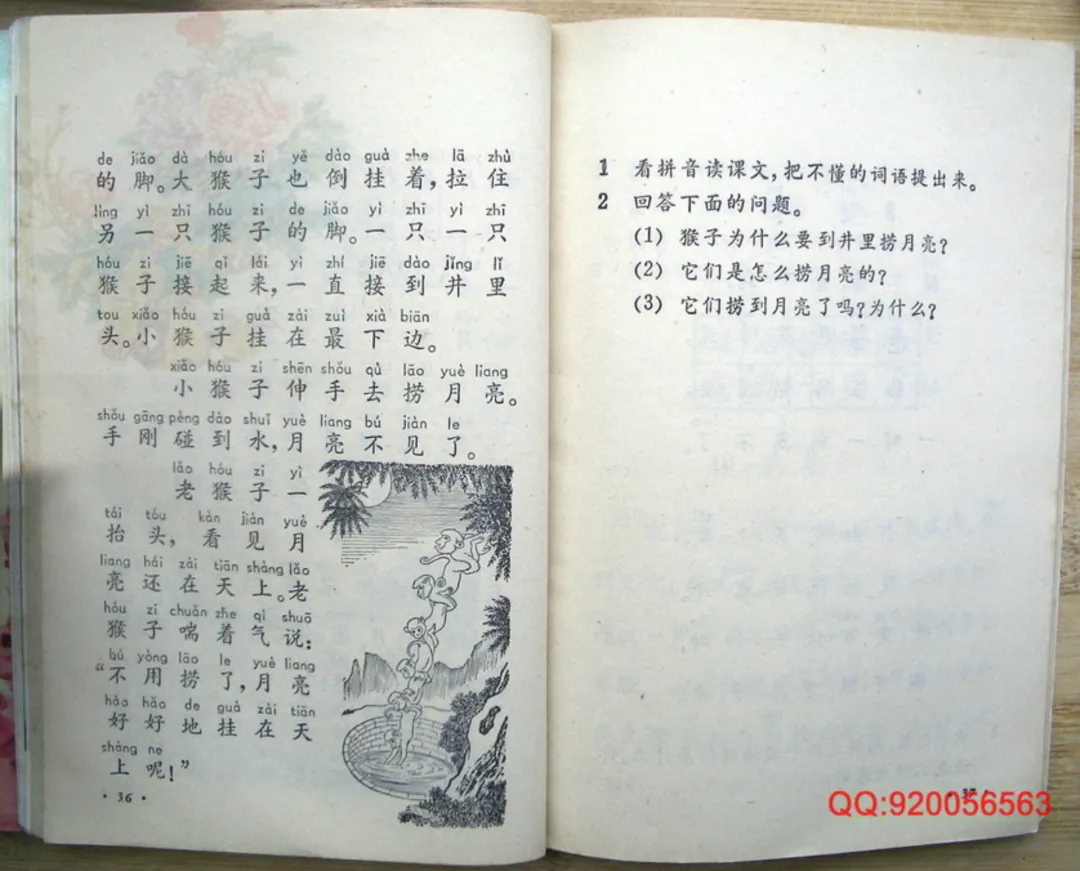 de jiǎo dà hóu zi yě dào guà zhe lā zhù
的脚。大猴子也倒挂着,拉住
lìng yì zhī hóu zi de jiǎo yì zhī yì zhī
另一只猴子的脚。一只一只
hóu zi jiē qǐ lái yì zhí jiē dào jǐng lǐ
猴子接起来,一直接到井里
tou xiǎo hóu zi guà zài zuì xià biān
头。小猴子挂在最下边。
xiǎo hóu zi shēn shǒu qù lāo yuè liang
小猴子伸手去捞月亮。
shǒu gāng pèng dào shuǐ yuè liang bú jiàn le
手刚碰到水,月亮不见了。
lǎo hóu zi yì
老猴子一
tái tóu kàn jiàn yuè
抬头,看见月
liang hái zài tiān shàng lǎo
亮还在天上。老
hóu zi chuǎn zhe qì shuō
猴子喘着气说:
bú yòng lāo le yuè liang
“不用捞了,月亮
hǎo hǎo de guà zài tiān
好好地挂在天
shàng ne
上呢!”
· 36 ·
1 看拼音读课文,把不懂的词语提出来。
2 回答下面的问题。
(1) 猴子为什么要到井里捞月亮?
(2) 它们是怎么捞月亮的?
(3) 它们捞到月亮了吗?为什么?
QQ:920056563